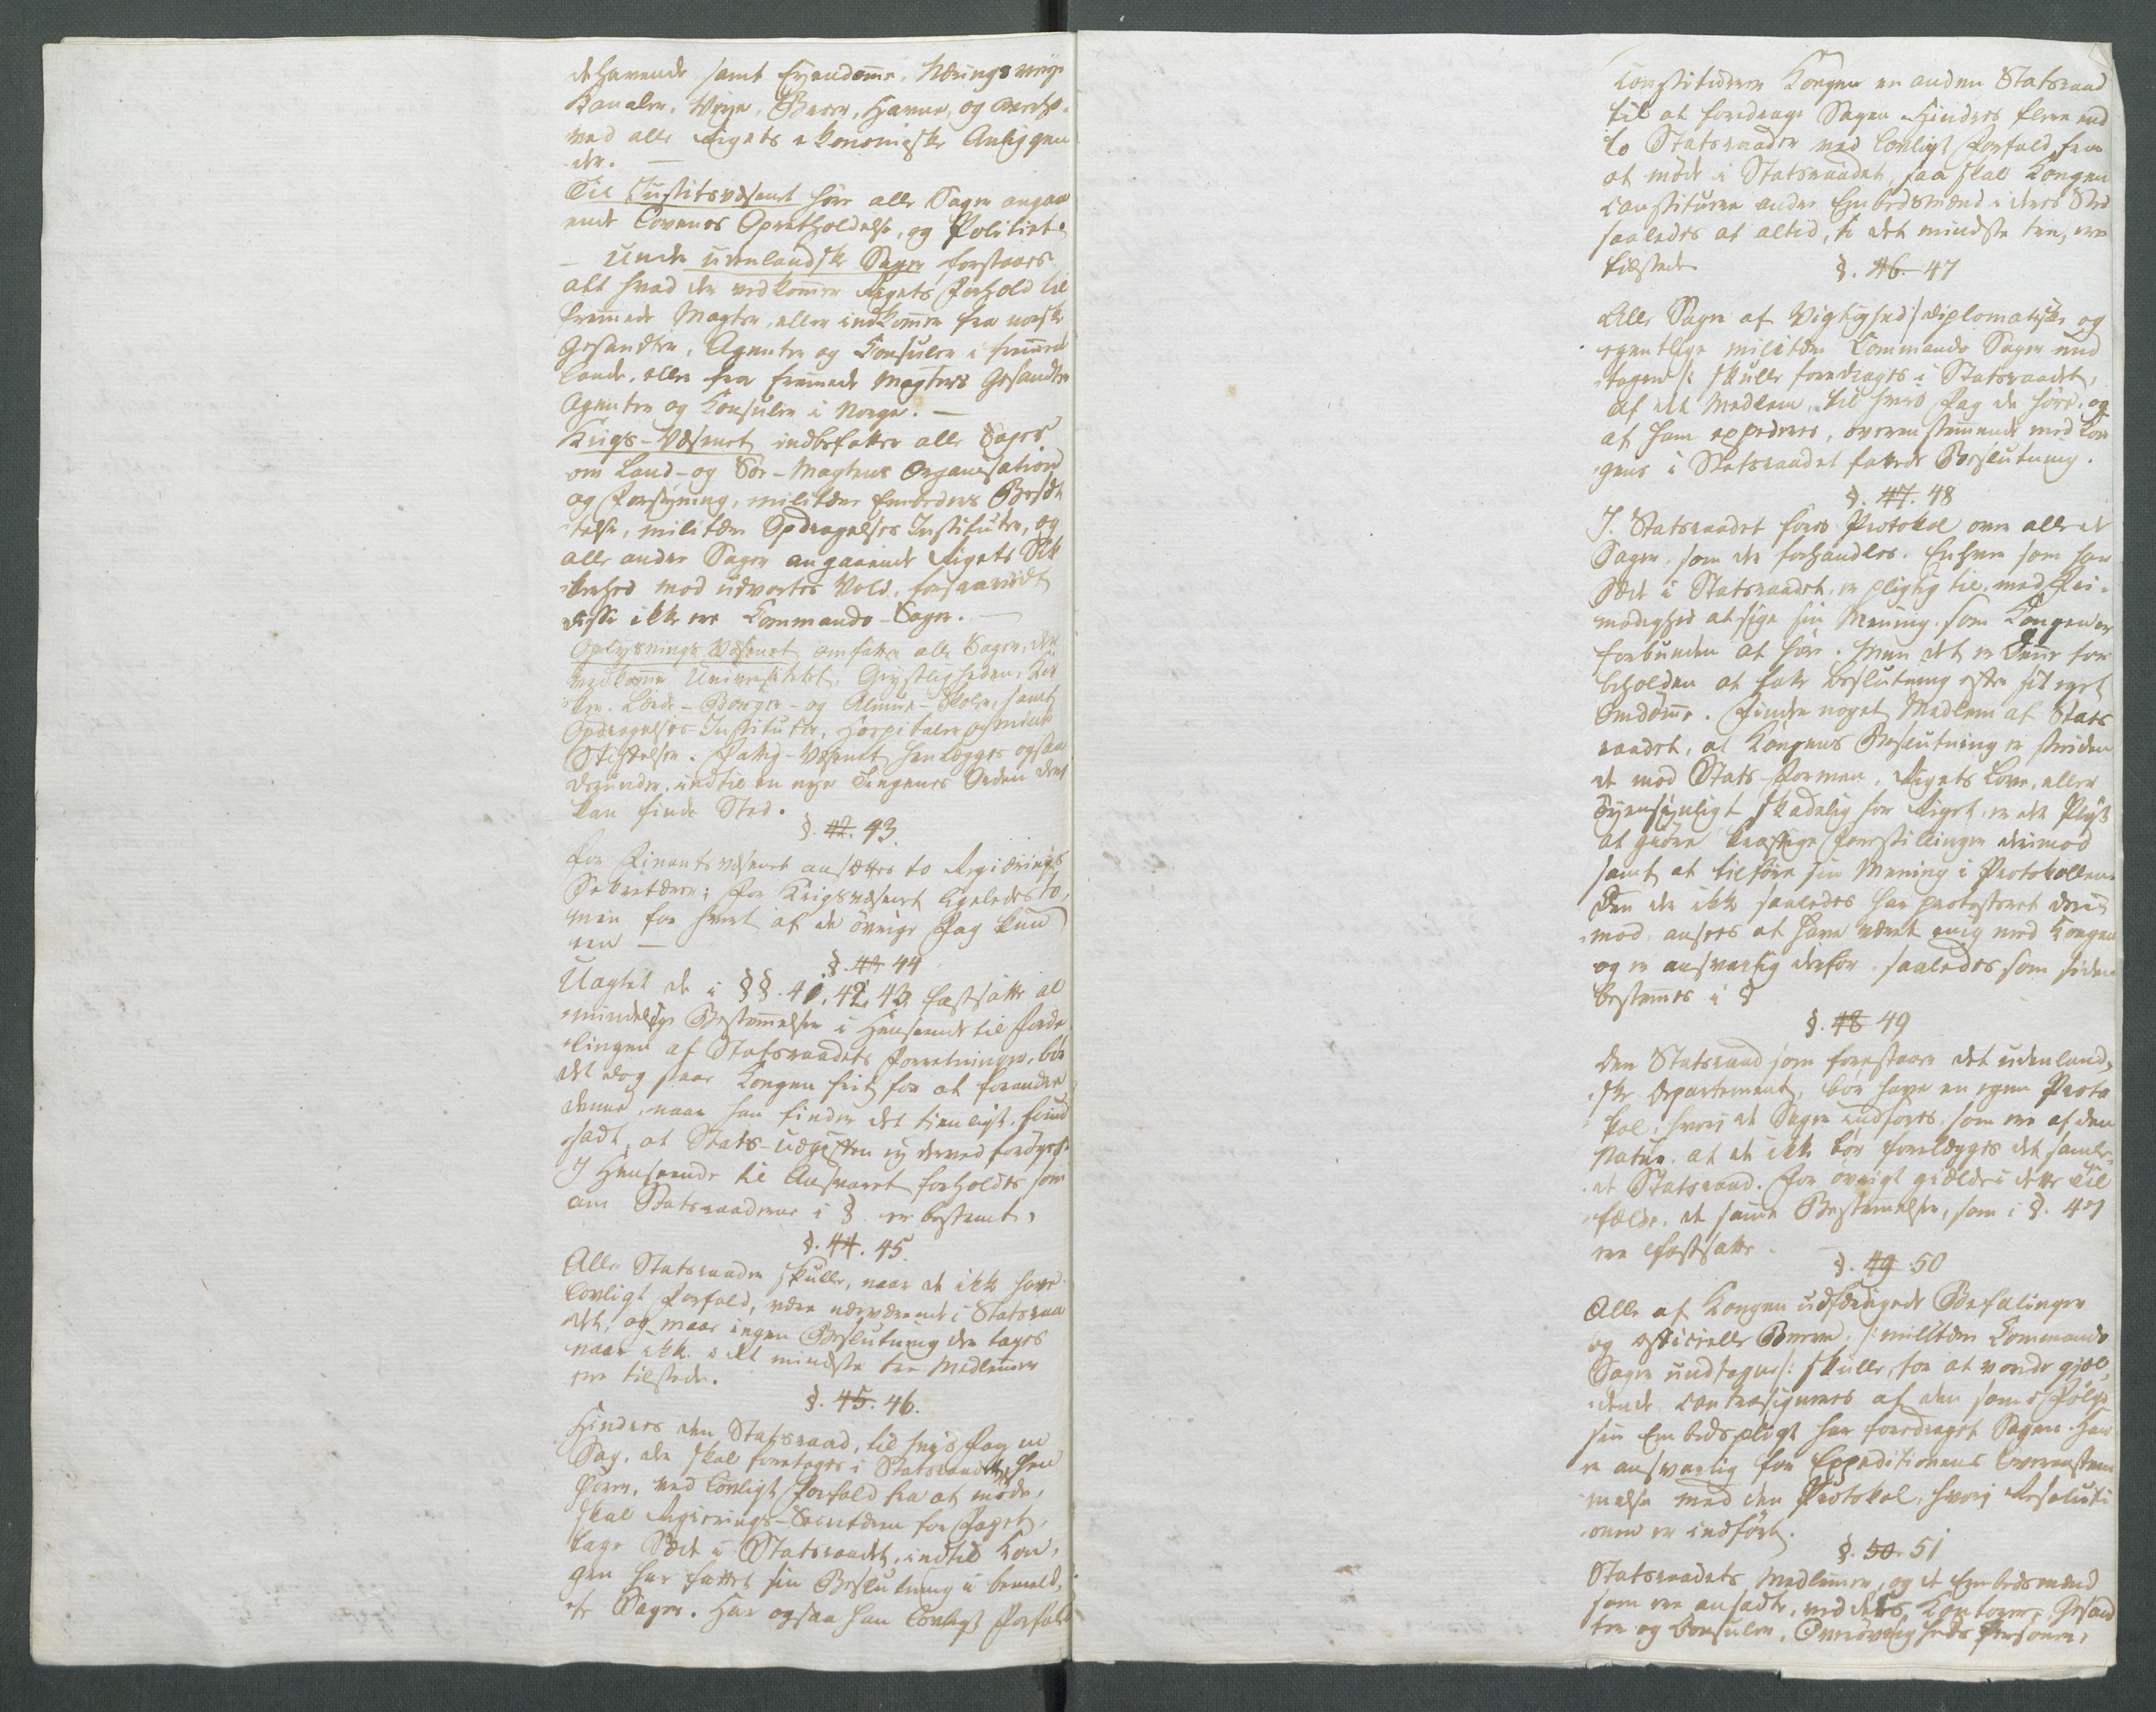 dehavende samt Eiendomme, Nærings veie
Kanaler, Veye, Broer, Havne, og
med alle Rigets økonomiske Anliggen
der. —
Til Justitsvæsenet høre alle Sager angaa
ende Lovenes Opretholdelse, og Politiet.
— Under udenlandske Sager forstaaes
alt hvad der vedkommer Rigets Forhold til
fremmede Magter, eller indkommer fra norske
Gesandter, Agenter og Consuler i fremmede
Lande, eller fra fremmede Magters Gesandter
Agenter og Consuler i Norge. —
Krigs-Væsenet indbefatter alle Sager
om Land- og Søe-Magtens Organisation
og Forsyning, militære Embeders Besæt
telse, militære Opdragelses Instituter, og
alle andre Sager angaaende Rigets Sik
kerhed mod udvortes Vold, forsaavidt
disse ikke ere Commando-Sager. —
Oplysnings Væsenet omfatter alle Sager, der
vedkomme Universitetet, Geistligheden, Kir
ker, Lærde- Borger- og Almue-Skoler, samt
Opdragelses-Instituter, Hospitaler og milde
Stiftelser. Fattig-Væsenet henlægges ogsaa
derunder, indtil en nye Tingenes Orden deri
kan finde Sted.
§. 42. 43.
For Finantsvæsenet ansættes to Regierings
Sekretærer; for Krigsvæsenet ligeledes to,
men for hvert af de øvrige Fag kun
een —
§. 43 44
Uagtet de i §§. 41, 42, 43 fastsatte al
mindelige Bestemmelser i Henseende til Forde
lingen af Statsraadets Forretninger, bør
det dog staae Kongen frit for at forandre
denne, naar han finder det tienligt, kund
sadt, at Stats-Udgiften ej derved forøges.
I Henseende til Ansvaret forholdes som
om Statsraaderne i § er bestemt,
§. 44. 45.
Alle Statsraader skulle, naar de ikke have
lovligt Forfald, være nærværende i Statsraa
det, og maae ingen Beslutning der tages
naar ikke i det mindste tre Medlemmer
ere tilstede.
§. 45. 46.
Hindres den Statsraad, til hvis Fag en
Sag, der skal foretages i Statsraadet, hen
hører, ved lovligt Forfald fra at møde,
skal Regierings-Secretæren for Faget,
tage Sæde i Statsraadet, indtil Kon
gen har fattet sin Beslutning i bemeld
te Sager. Har ogsaa han lovligt Forfald
constituerer Kongen en anden Statsraad
til at foredrage Sagen. Hindres flere end
to Statsraader ved lovligt Forfald fra
at møde i Statsraadet, saa skal Kongen
constituere andre Embedsmænd i deres Sted
saaledes at altid, i det mindste tre, ere
tilstede
§. 46. 47
Alle Sager af Vigtighed /: diplomatiske og
egentlige militære Commando Sager und
tagen :/ skulle foredrages i Statsraadet,
af det Medlem, til hvis Fag de høre, og
af ham expederes, overenstemmende med Kon
gens i Statsraadet fattede Beslutning.
§. 47. 48
I Statsraadet føres Protokol over alle de
Sager, som der forhandles. Enhver som har
Sæde i Statsraadet, er pligtig til, med Fri
modighed at sige sin Mening, som Kongen er
forbunden at høre. Men det er Denne for
beholden at fatte Beslutning efter sit eget
Omdømme. Finder noget Medlem af Stats
raadet, at Kongens Beslutning er striden
de mod Stats-Formen, Rigets Love, eller
Øyensynligt skadelig for Riget, er det Pligt
at giøre kraftige Forestillinger derimod
samt at tilføre sin Mening i Protokollen.
Den der ikke saaledes har protesteret deri
mod, ansees at have været enig med Kongen
og er ansvarlig derfor, saaledes som siden
bestemmes i §
§. 48 49
Den Statsraad som forestaaer det udenland
ske Departement, bør have en egen Proto
kol, hvori de Sager indføres, som ere af den
Natur, at de ikke bør forelægges det samle
de Statsraad. For øvrigt gielde i dette Til
fælde, de samme Bestemmelser, som i §. 47
ere fastsatte.
§. 49 50
Alle af Kongen udfærdigede Befalinger
og officielle Breve, /: militære Commando
Sager undtagne :/ skulle, for at vorde gjel
dende contrasigneres af den som i Følge
sin Embedspligt har foredraget Sagen. Han
er ansvarlig for Expeditionens Overenstem
melse med den Protokol, hvori Resoluti
onen er indført.
§. 50. 51
Statsraadets Medlemmer, og de Embedsmænd
som ere ansadte, ved dets Contoirer, Gesand
ter og Consuler, Overøvrigheds Personer,